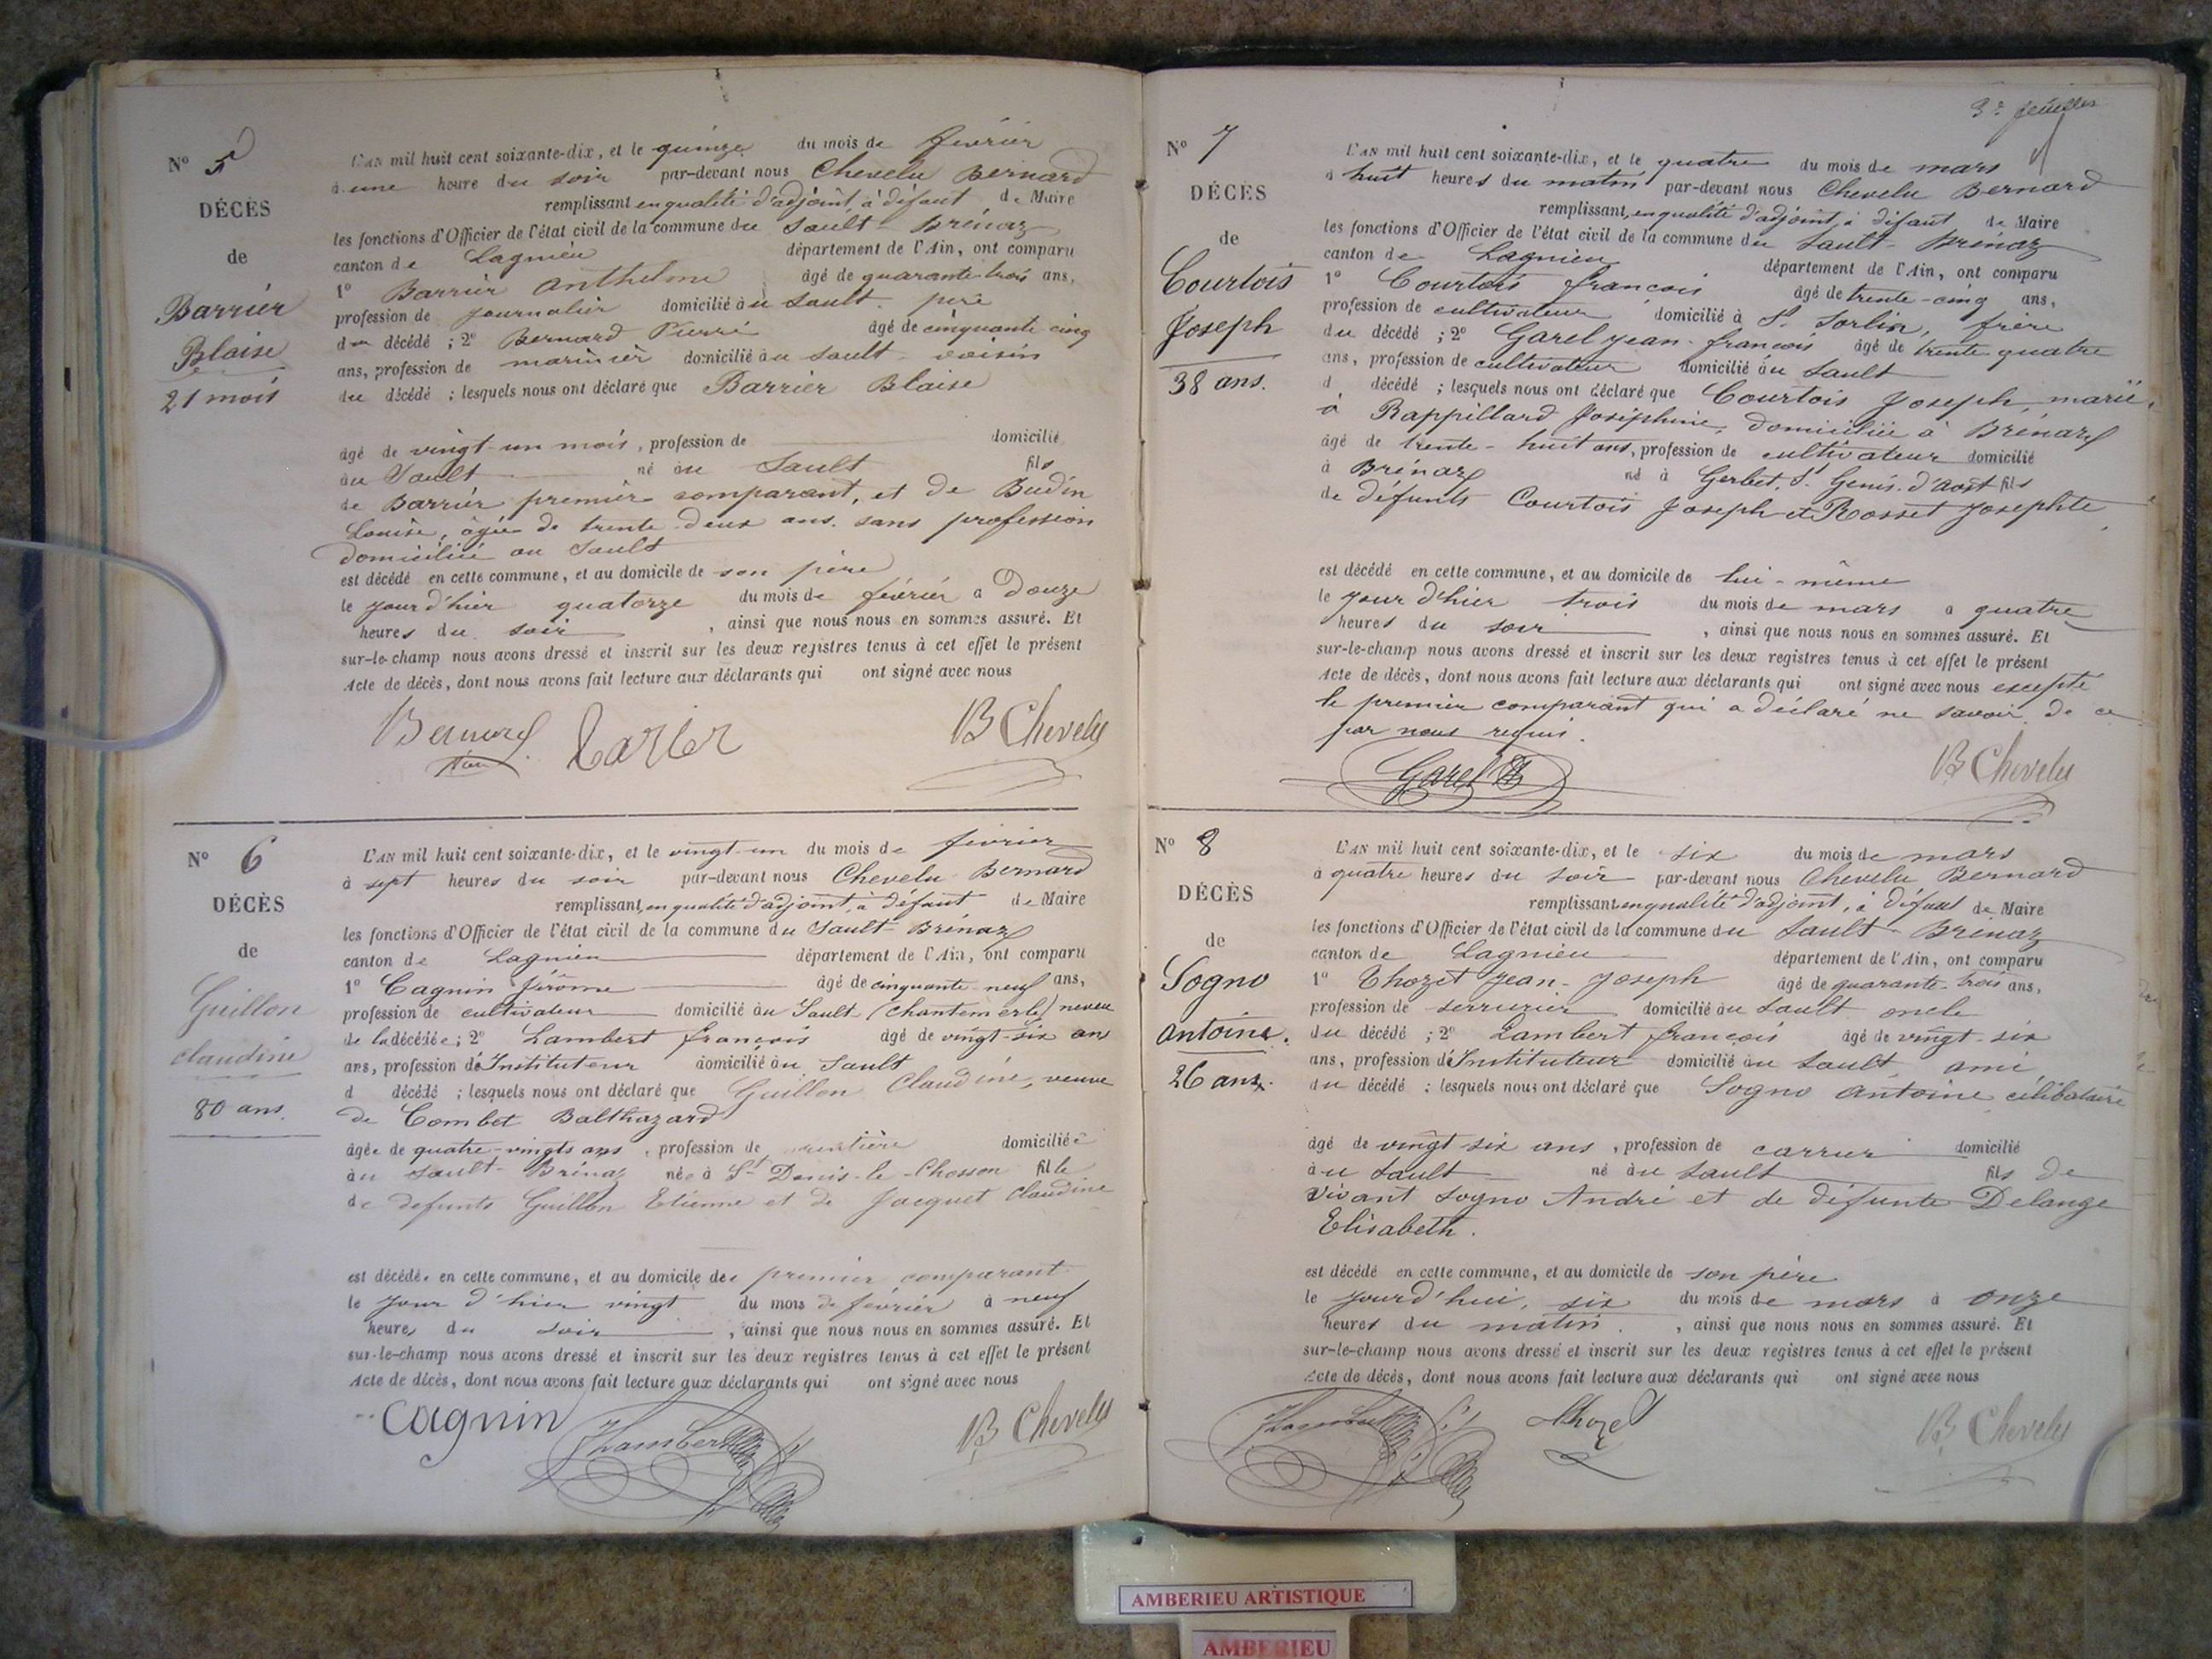 Nº 5
DÉCÈS
de
Barrier
Blaise
21 mois
L'AN mil huit cent soixante-dix, et le quinze du mois de février
à une heure du soir par-devant nous Chevelu Bernard
remplissant en qualité d'adjoint, à défaut de Maire
les fonctions d'Officier de l'état civil de la commune du Sault-Brénaz
canton de Lagnieu département de l'Ain, ont comparu
1º Barrier Anthelme âgé de quarante-trois ans,
profession de journalier domicilié au Sault père
du décédé ; 2º Bernard Pierre âgé de cinquante cinq
ans, profession de marinier domicilié au Sault voisin
du décédé ; lesquels nous ont déclaré que Barrier Blaise
âgé de vingt-un mois, profession de domicilié
au Sault né au Sault fils
de Barrier premier comparant, et de Budin
Louise, âgée de trente-deux ans, sans profession
domiciliée au Sault
est décédé en cette commune, et au domicile de son père
le jour d'hier quatorze du mois de février à douze
heures du soir , ainsi que nous nous en sommes assuré. Et
sur-le-champ nous avons dressé et inscrit sur les deux registres tenus à cet effet le présent
Acte de décès, dont nous avons fait lecture aux déclarants qui ont signé avec nous
Bernard Barier B Chevelu
Nº 6
DÉCÈS
de
Guillon
claudine
80 ans.
L'AN mil huit cent soixante-dix, et le vingt-un du mois de février
à sept heures du soir par-devant nous Chevelu Bernard
remplissant, en qualité d'adjoint, à défaut de Maire
les fonctions d'Officier de l'état civil de la commune du Sault-Brénaz
canton de Lagnieu département de l'Ain, ont comparu
1º Cagnin Jérôme âgé de cinquante-neuf ans,
profession de cultivateur domicilié au Sault (Chantemerle) neveu
de la décédée ; 2º Lambert françois âgé de vingt-six ans
ans, profession d'Instituteur domicilié au Sault
d décédé ; lesquels nous ont déclaré que Guillon Claudine, veuve
de Combet Balthazard
âgée de quatre-vingts ans, profession de rentière domiciliée
au Sault-Brénaz née à St Denis-le-Chosson fille
de défunts Guillon Etienne et de Jacquet Claudine
est décédée en cette commune, et au domicile de premier comparant
le jour d'hier vingt du mois de février à neuf
heures du soir , ainsi que nous nous en sommes assuré. Et
sur-le-champ nous avons dressé et inscrit sur les deux registres tenus à cet effet le présent
Acte de décès, dont nous avons fait lecture aux déclarants qui ont signé avec nous
Cagnin Lambert B Chevelu
Nº 7
DÉCÈS
de
Courtois
Joseph
38 ans.
L'AN mil huit cent soixante-dix, et le quatre du mois de mars
à huit heures du matin par-devant nous Chevelu Bernard
remplissant, en qualité d'adjoint, à défaut de Maire
les fonctions d'Officier de l'état civil de la commune du Sault-Brénaz
canton de Lagnieu département de l'Ain, ont comparu
1º Courtois françois âgé de trente-cinq ans,
profession de cultivateur domicilié à St Sorlin, frère
du décédé ; 2º Garel jean-françois âgé de trente quatre
ans, profession de cultivateur domicilié au Sault
d décédé ; lesquels nous ont déclaré que Courtois Joseph, marié,
à Rappillard Joséphine, domiciliée à Brénaz
âgé de trente-huit ans, profession de cultivateur domicilié
à Brénaz né à Gerbet, St Genis-d'Aost fils
de défunts Courtois Joseph et Rosset Josephte
est décédé en cette commune, et au domicile de lui-même
le jour d'hier trois du mois de mars à quatre
heures du soir , ainsi que nous nous en sommes assuré. Et
sur-le-champ nous avons dressé et inscrit sur les deux registres tenus à cet effet le présent
Acte de décès, dont nous avons fait lecture aux déclarants qui ont signé avec nous excepté
le premier comparant qui a déclaré ne savoir de ce
par nous requis.
Garel B Chevelu
Nº 8
DÉCÈS
de
Sogno
antoine.
26 ans.
L'AN mil huit cent soixante-dix, et le six du mois de mars
à quatre heures du soir par-devant nous Chevelu Bernard
remplissant en qualité d'adjoint, à défaut de Maire
les fonctions d'Officier de l'état civil de la commune du Sault-Brénaz
canton de Lagnieu département de l'Ain, ont comparu
1º Thozet Jean-Joseph âgé de quarante-trois ans,
profession de serrurier domicilié au Sault oncle
du décédé ; 2º Lambert françois âgé de vingt-six
ans, profession d'Instituteur domicilié au Sault ami
du décédé ; lesquels nous ont déclaré que Sogno Antoine célibataire
âgé de vingt six ans, profession de carrier domicilié
au Sault né au Sault fils de
vivant Sogno André et de défunte Delange
Elisabeth.
est décédé en cette commune, et au domicile de son père
le jourd'hui, six du mois de mars à onze
heures du matin. , ainsi que nous nous en sommes assuré. Et
sur-le-champ nous avons dressé et inscrit sur les deux registres tenus à cet effet le présent
Acte de décès, dont nous avons fait lecture aux déclarants qui ont signé avec nous
Lambert Thozet B Chevelu
AMBERIEU ARTISTIQUE
AMBERIEU